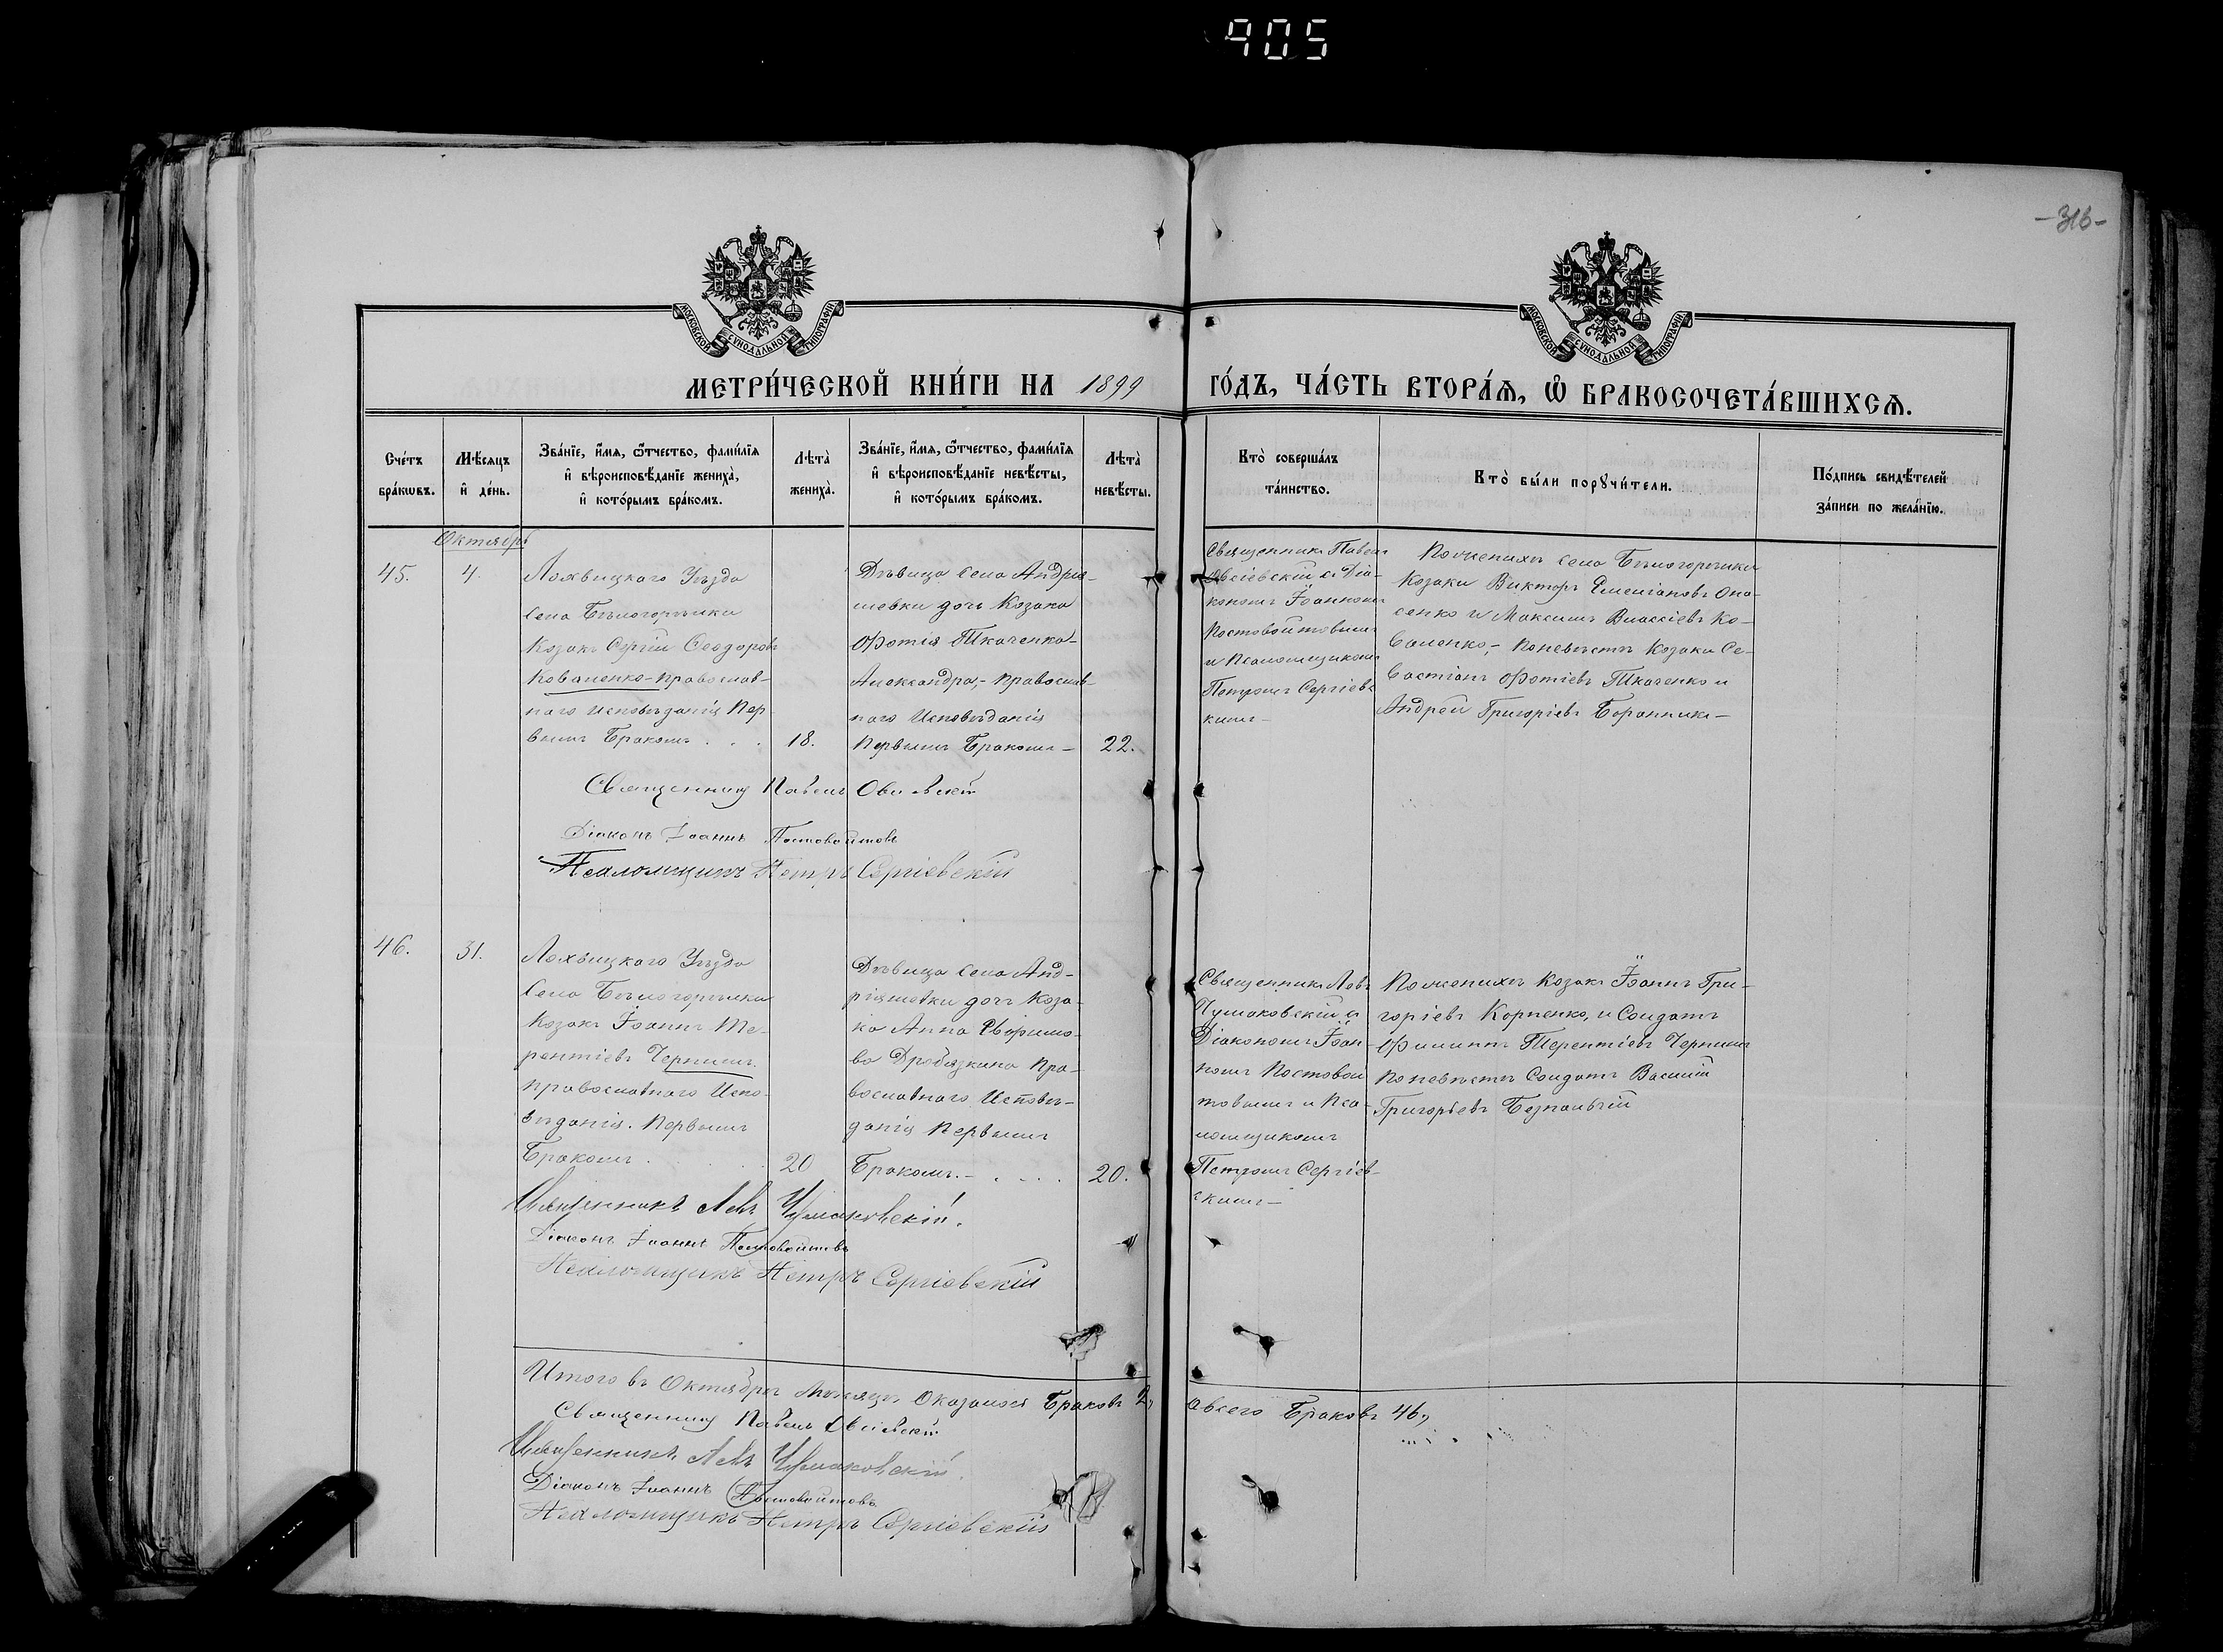 905
-316-
МОСКОВСКОЙ СУНОДАЛЬНОЙ ТИПОГРАФІИ
МОСКОВСКОЙ СУНОДАЛЬНОЙ ТИПОГРАФІИ
МЕТРИ́ЧЕСКОЙ КНИ́ГИ НА 1899 ГО́ДЪ, ЧА́СТЬ ВТОРА́Я, Ѡ БРАКОСОЧЕТА́ВШИХСѦ.
Сче́тъ
бра́кωвъ.
Мѣ́сяцъ
и҆ де́нь.
Зва́нїе, и҆́мѧ, ѻ҆́тчество, фами́лїѧ
и҆ вѣроисповѣ́данїе жениха̀,
и҆ кото́рымъ бра́комъ.
Лѣта̀
жениха̀.
Зва́нїе, и҆́мѧ, ѻ҆́тчество, фами́лїѧ
и҆ вѣроисповѣ́данїе невѣ́сты,
и҆ кото́рымъ бра́комъ.
Лѣта̀
невѣ́сты.
Кто̀ соверша́лъ
та́инство.
Кто̀ бы́ли порꙋчи́тели.
По́дпись свидѣ́телей
за́писи по жела́нїю.
Октябрь
45.
4.
Лохвицкаго Уѣзда
села Бѣлогорѣлки
Козакъ Сергій Ѳеодоровъ
Коваленко-православ-
наго исповѣданія пер-
вымъ бракомъ . . .
18.
Дѣвица села Андрія-
шевки дочь Козака
Фотія Ткаченка-
Александра,- православ-
наго исповѣданія
первымъ бракомъ -
22.
Священникъ Павелъ
Овсіевскій съ Діа-
кономъ Іоанномъ
Постовойтовымъ
и Псаломщикомъ
Петромъ Сергіевс-
кимъ -
По женихѣ села Бѣлогорѣлки
Козаки Викторъ Емеліановъ Опа-
сенко и Максимъ Власіевъ Ко-
валенко,- по невѣстѣ Козаки Се-
вастіанъ Фотіевъ Ткаченко и
Андрей Григоріевъ Боранникъ -
Священникъ Павелъ Овсіевскій
Діаконъ Іоаннъ Постовойтовъ
Псаломщикъ Петръ Сергіевскій
46.
31.
Лохвицкаго Уѣзда
села Бѣлогорѣлки
Козакъ Іоаннъ Те-
рентіевъ Чернышъ
православнаго испо-
вѣданія. первымъ
бракомъ .
20
Дѣвица села Анд-
ріяшевки дочь Коза-
ка Анна
ва Дробязкина пра-
вославнаго исповѣ-
данія первымъ
бракомъ. - . . . .
20.
Священникъ Левъ
Чумаковскій съ
Діакономъ Іоан-
номъ Постовой-
товымъ и Пса-
ломщикомъ
Петромъ Сергіев-
скимъ -
По женихѣ Козакъ Іоаннъ Гри-
горіевъ Корпенко, и Солдатъ
Филиппъ Терентіевъ Чернышъ
по невѣстѣ Солдатъ Василій
Григорьевъ Безпалый
Священникъ Левъ Чумаковскій.
Діаконъ Іоаннъ Постовойтовъ
Псаломщикъ Петръ Сергіевскій
Итого въ Октябрѣ мѣсяцѣ оказалося браковъ 2, а всего браковъ 46.,
Священникъ Павелъ Овсіевскій
Священникъ Левъ Чумаковскій.
Діаконъ Іоаннъ Постовойтовъ
Псаломщикъ Петръ Сергіевскій